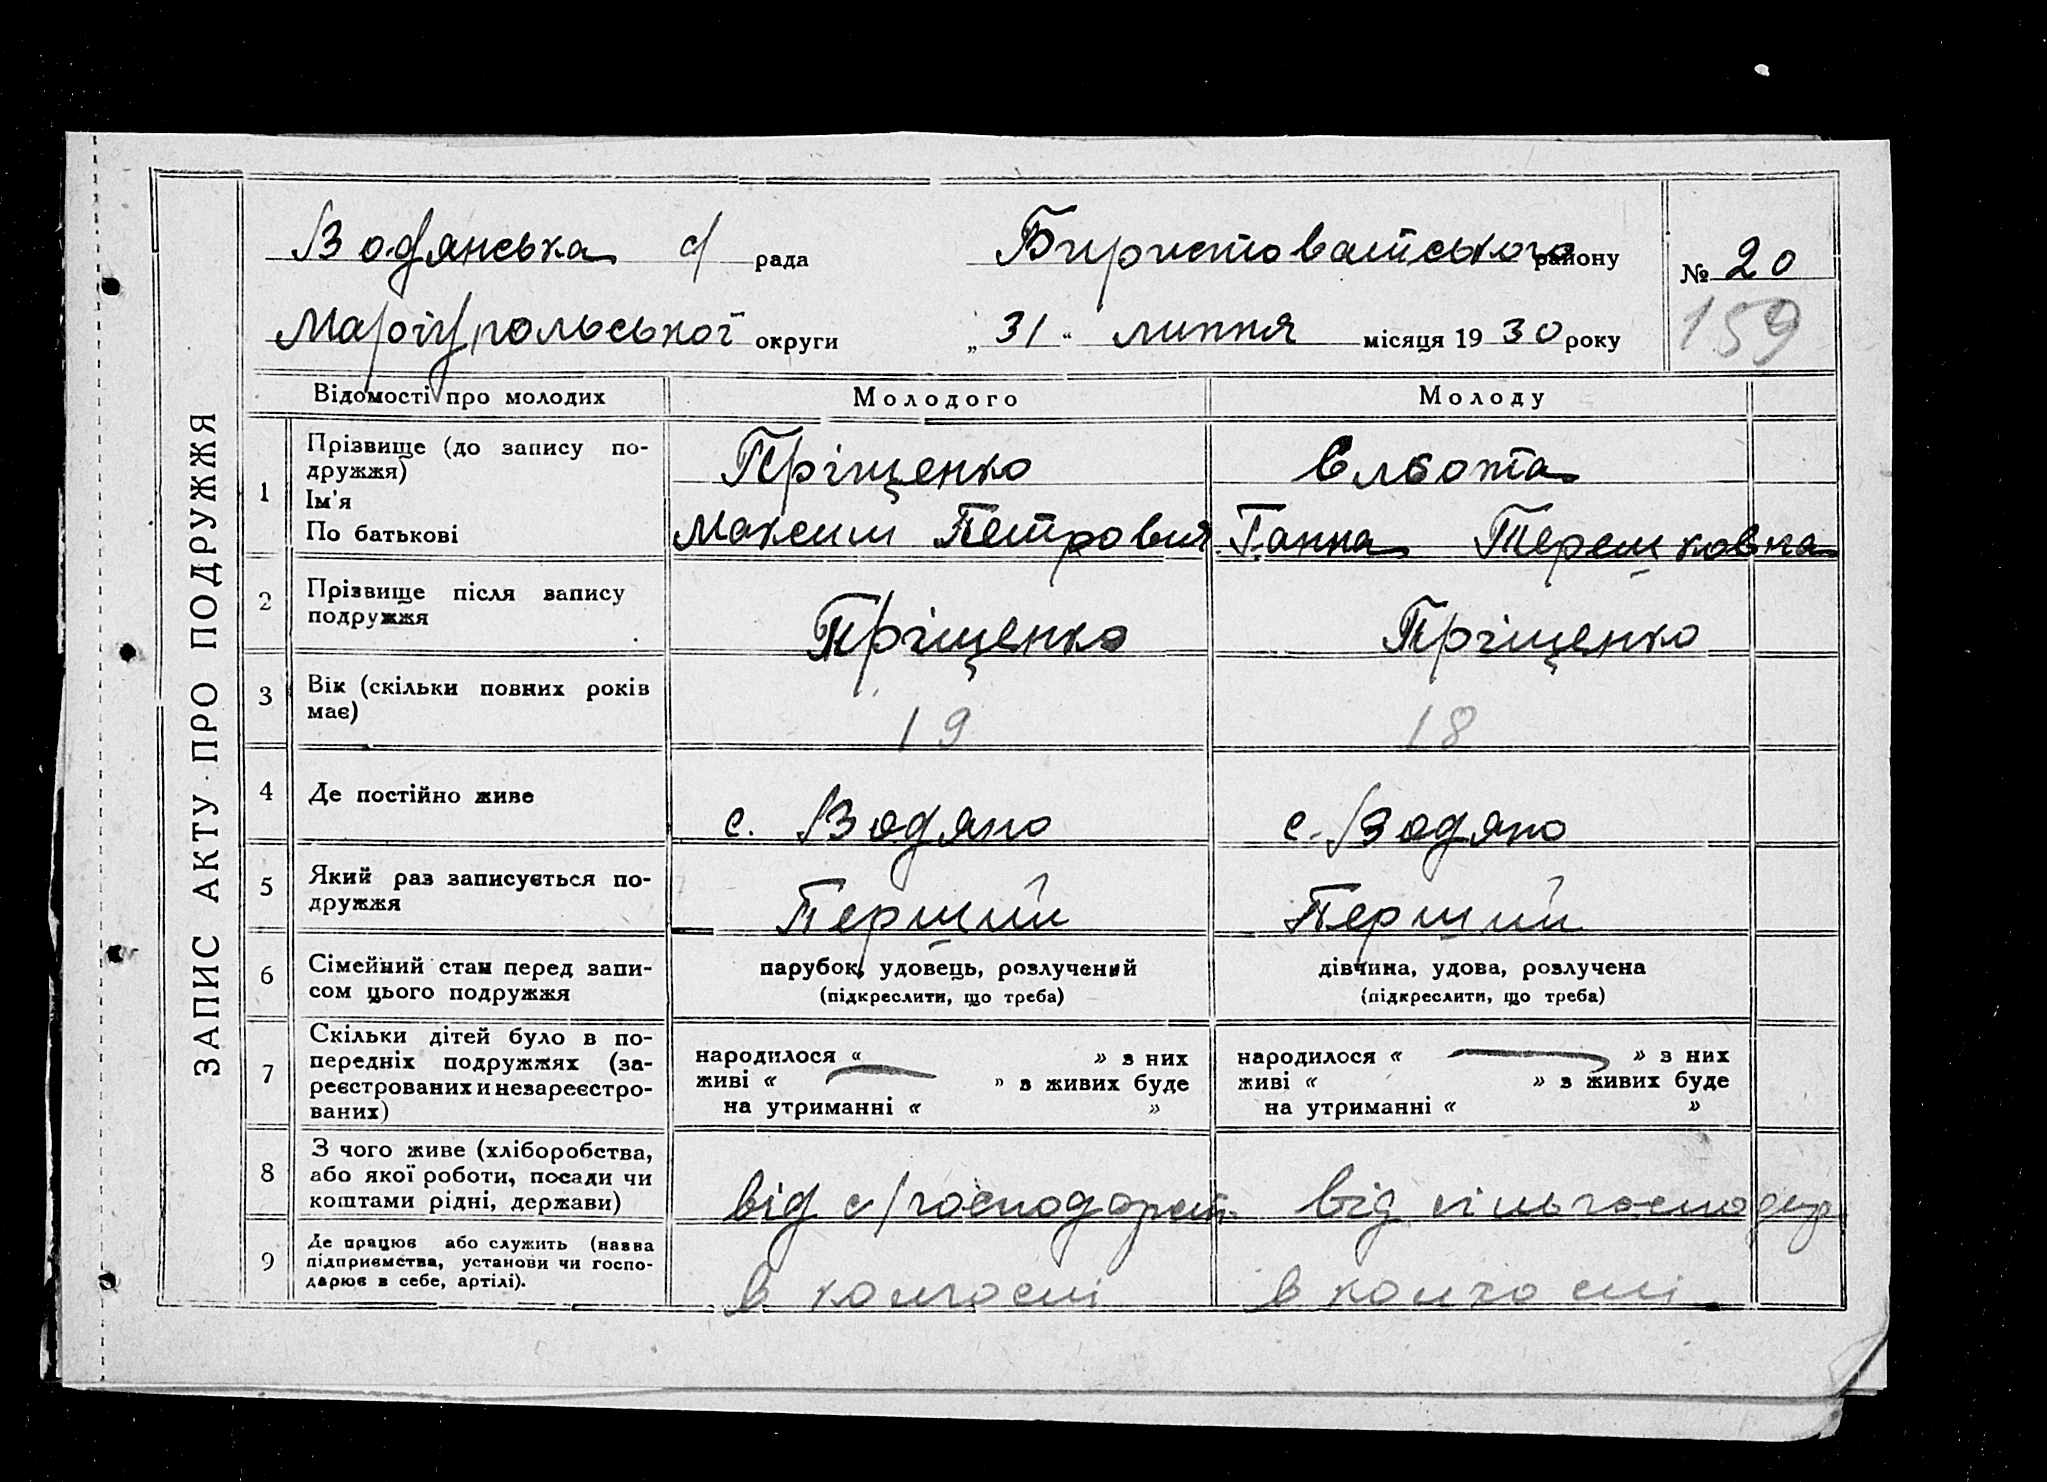 ЗАПИС АКТУ ПРО ПОДРУЖЖЯ
Водянська с/ рада
Маріупольської округи
району
„ 31 “ липня місяця 19 30 року
№ 20
159
Відомості про молодих
Молодого
Молоду
1
Прізвище (до запису по-
дружжя)
Ім'я
По батькові
Пріщенко
Максим Петрович
Ганна Терешковна
2
Прізвище після запису
подружжя
Пріщенко
Пріщенко
3
Вік (скільки повних років
має)
19
18
4
Де постійно живе
с. Водяно
с. Водяно
5
Який раз записується по-
дружжя
Перший
Перший
6
Сімейний стан перед запи-
сом цього подружжя
парубок, удовець, розлучений
(підкреслити, що треба)
дівчина, удова, розлучена
(підкреслити, що треба)
7
Скільки дітей було в по-
передніх подружжях (за-
реєстрованих и незареєстро-
ваних)
народилося « — » з них
живі « — » з живих буде
на утриманні « »
народилося « — » з них
живі « » з живих буде
на утриманні « »
8
З чого живе (хліборобства,
або якої роботи, посади чи
коштами рідні, держави)
від с/господарст.
від сільгосподар
9
Де працює або служить (назва
підприємства, установи чи госпо-
дарює в себе, артілі).
в колгоспі
в колгоспі